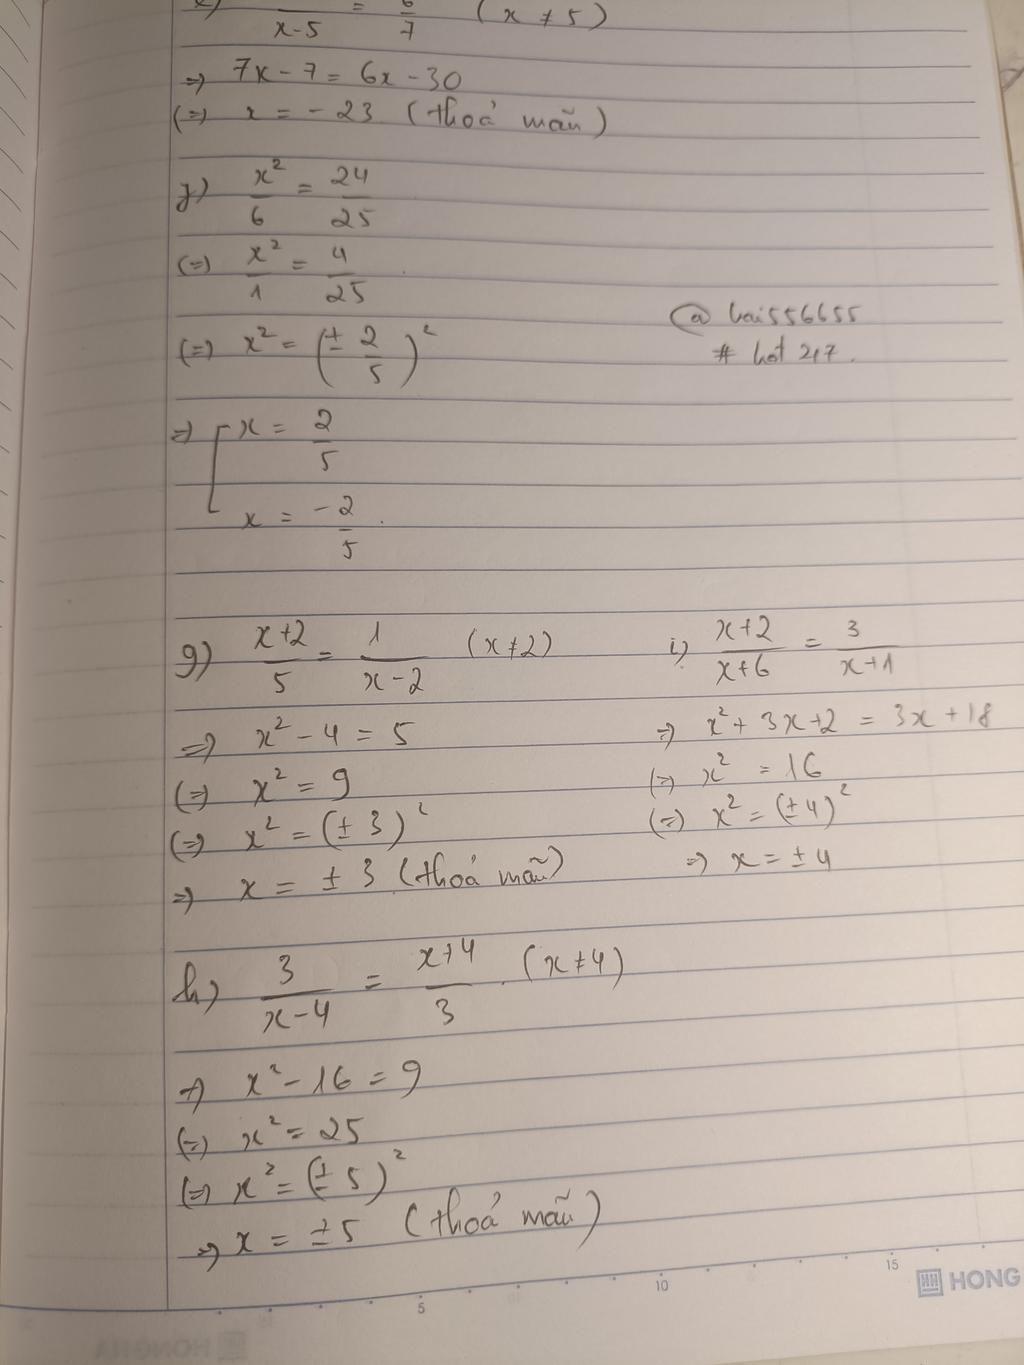 x-5 = 7 (x ≠ 5)
=> 7x - 7 = 6x - 30
(=) x = - 23 (thoả mãn)
f) x²/6 = 24/25
(=) x²/1 = 4/25
(=) x² = (± 2/5)²
=> [ x = 2/5
x = -2/5 .
@ hai556655
# hot 247.
g) x+2/5 = 1/x-2 (x ≠ 2)
=> x² - 4 = 5
(=) x² = 9
(=) x² = (± 3)²
=> x = ± 3 (thoả mãn)
i) x+2/x+6 = 3/x+1
=> x² + 3x + 2 = 3x + 18
(=) x² = 16
(=) x² = (± 4)²
=> x = ± 4
h) 3/x-4 = x+4/3 . (x ≠ 4)
=> x² - 16 = 9
(=) x² = 25
(=) x² = (± 5)²
=> x = ± 5 (thoả mãn)
5 10 15
HONG